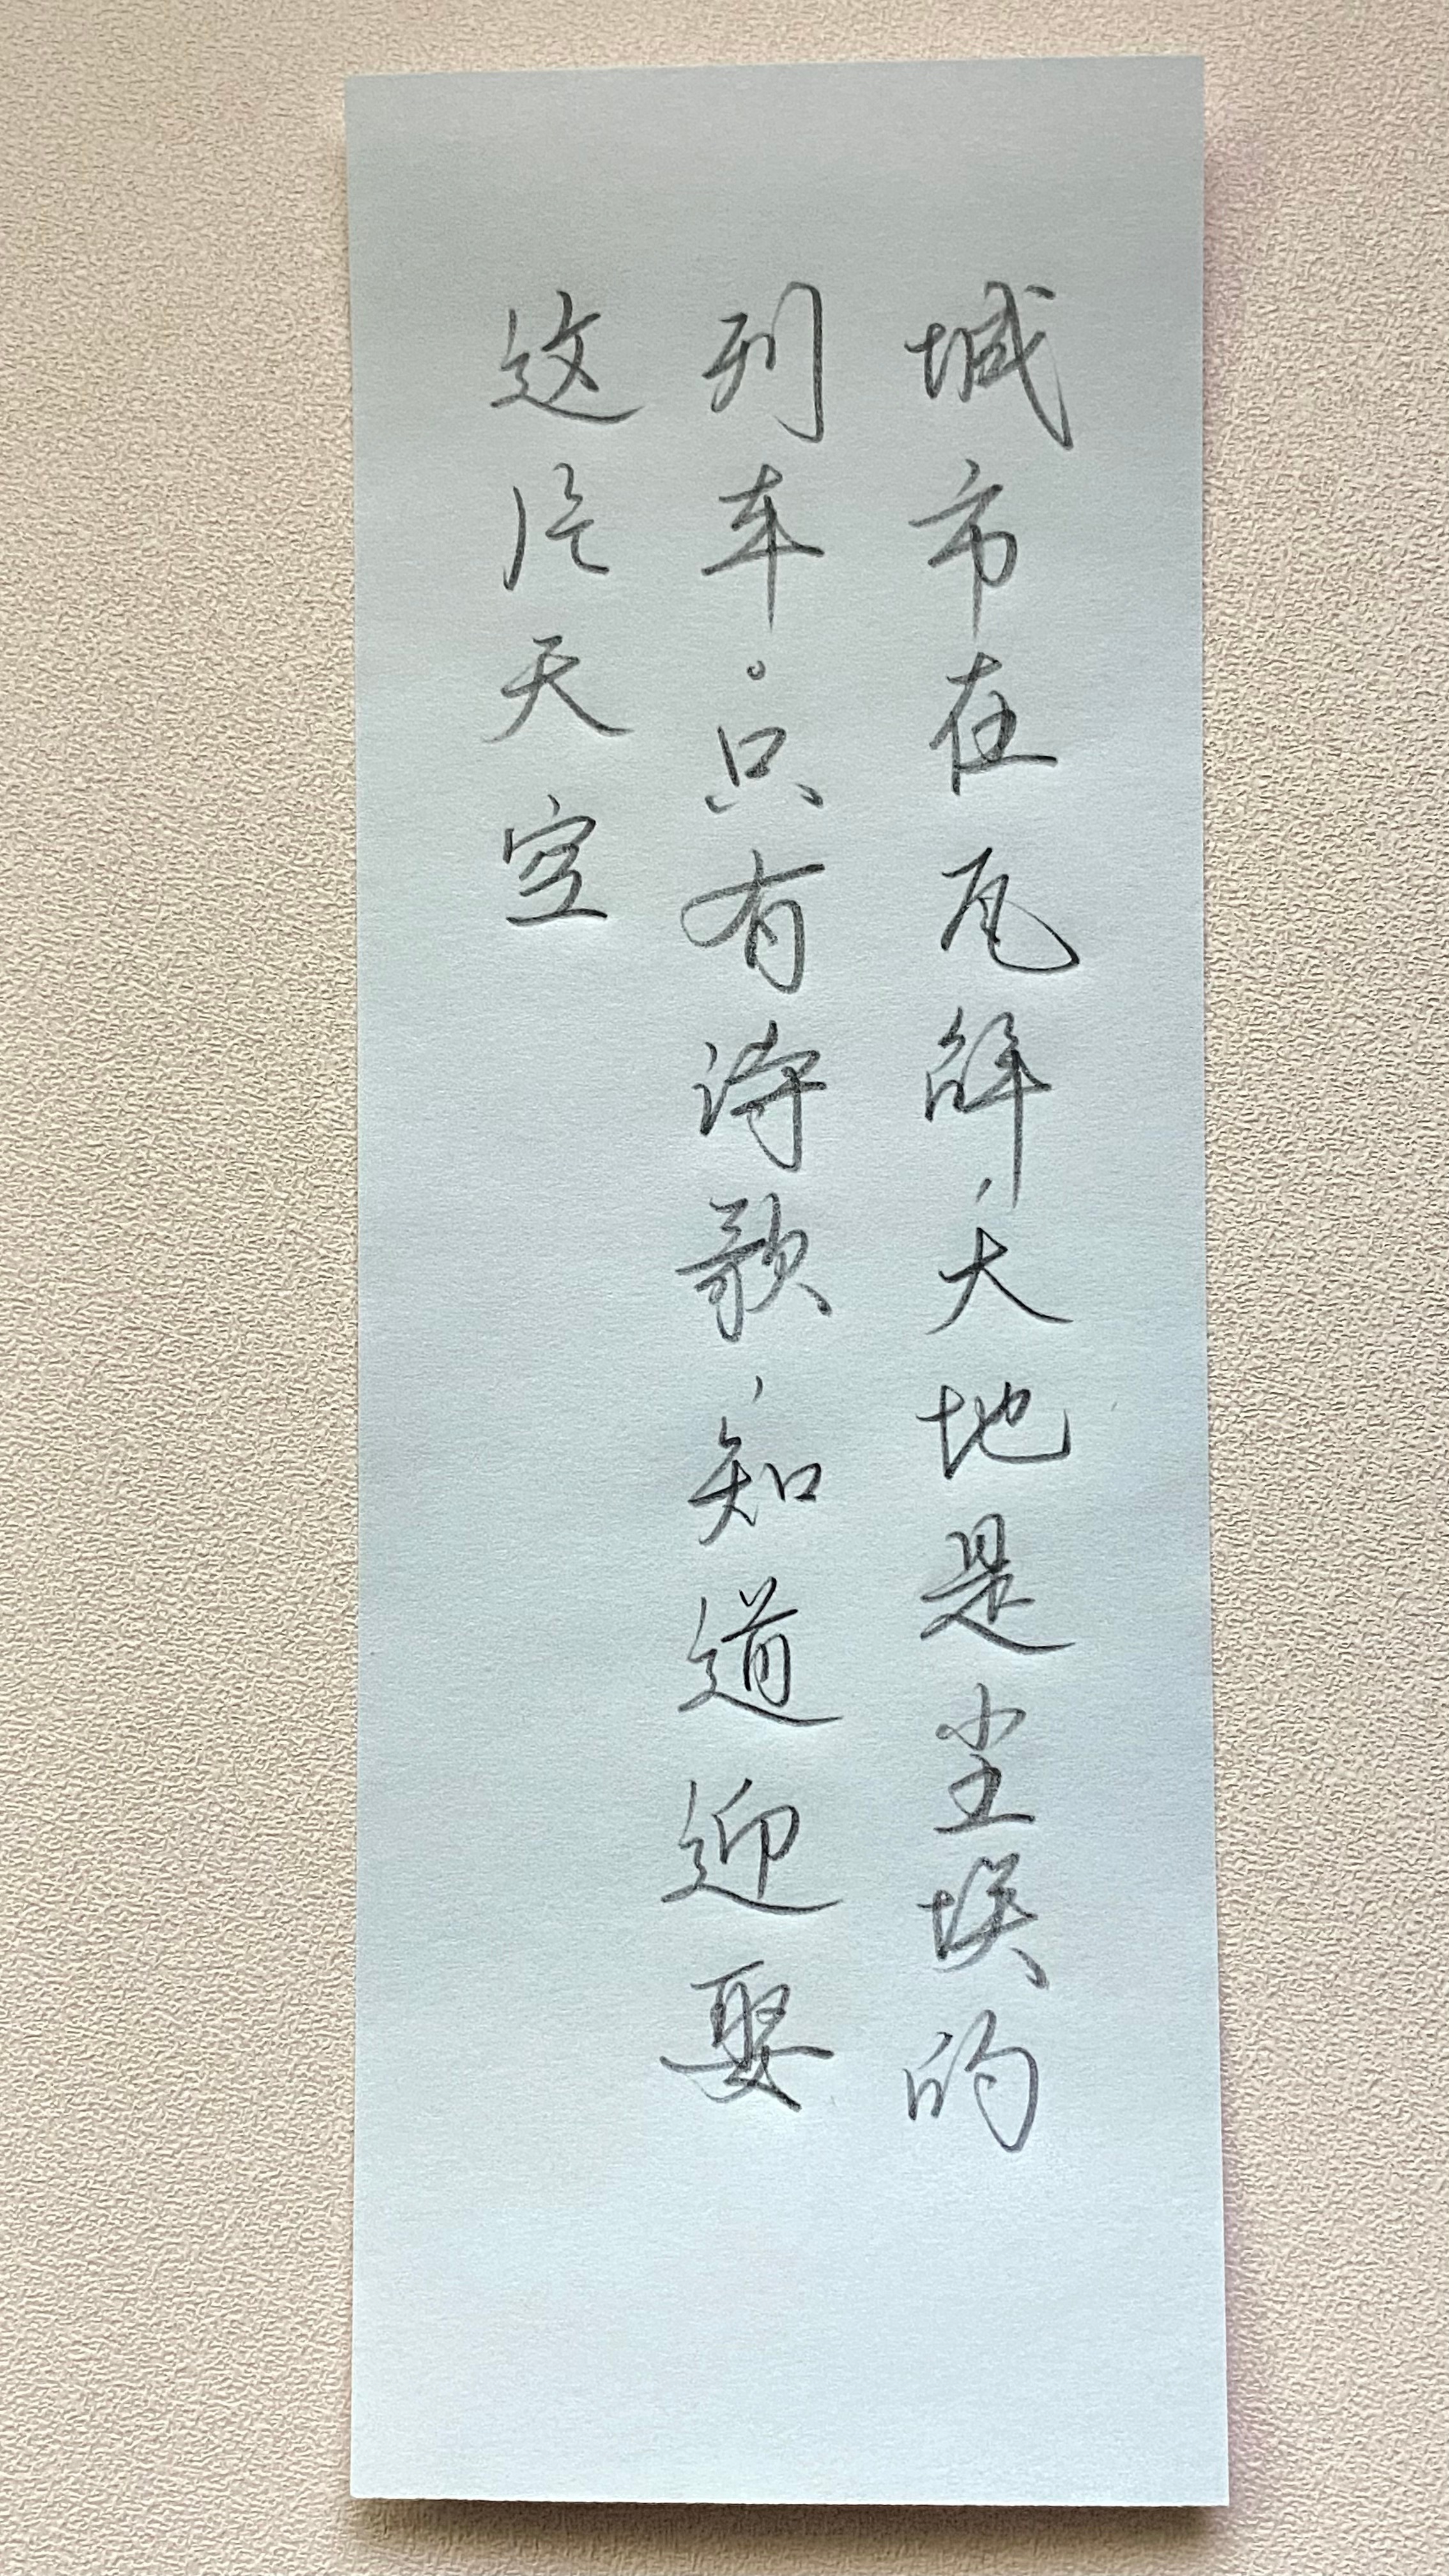 城市在瓦解，大地是尘埃的
列车。只有诗歌，知道迎娶
这片天空